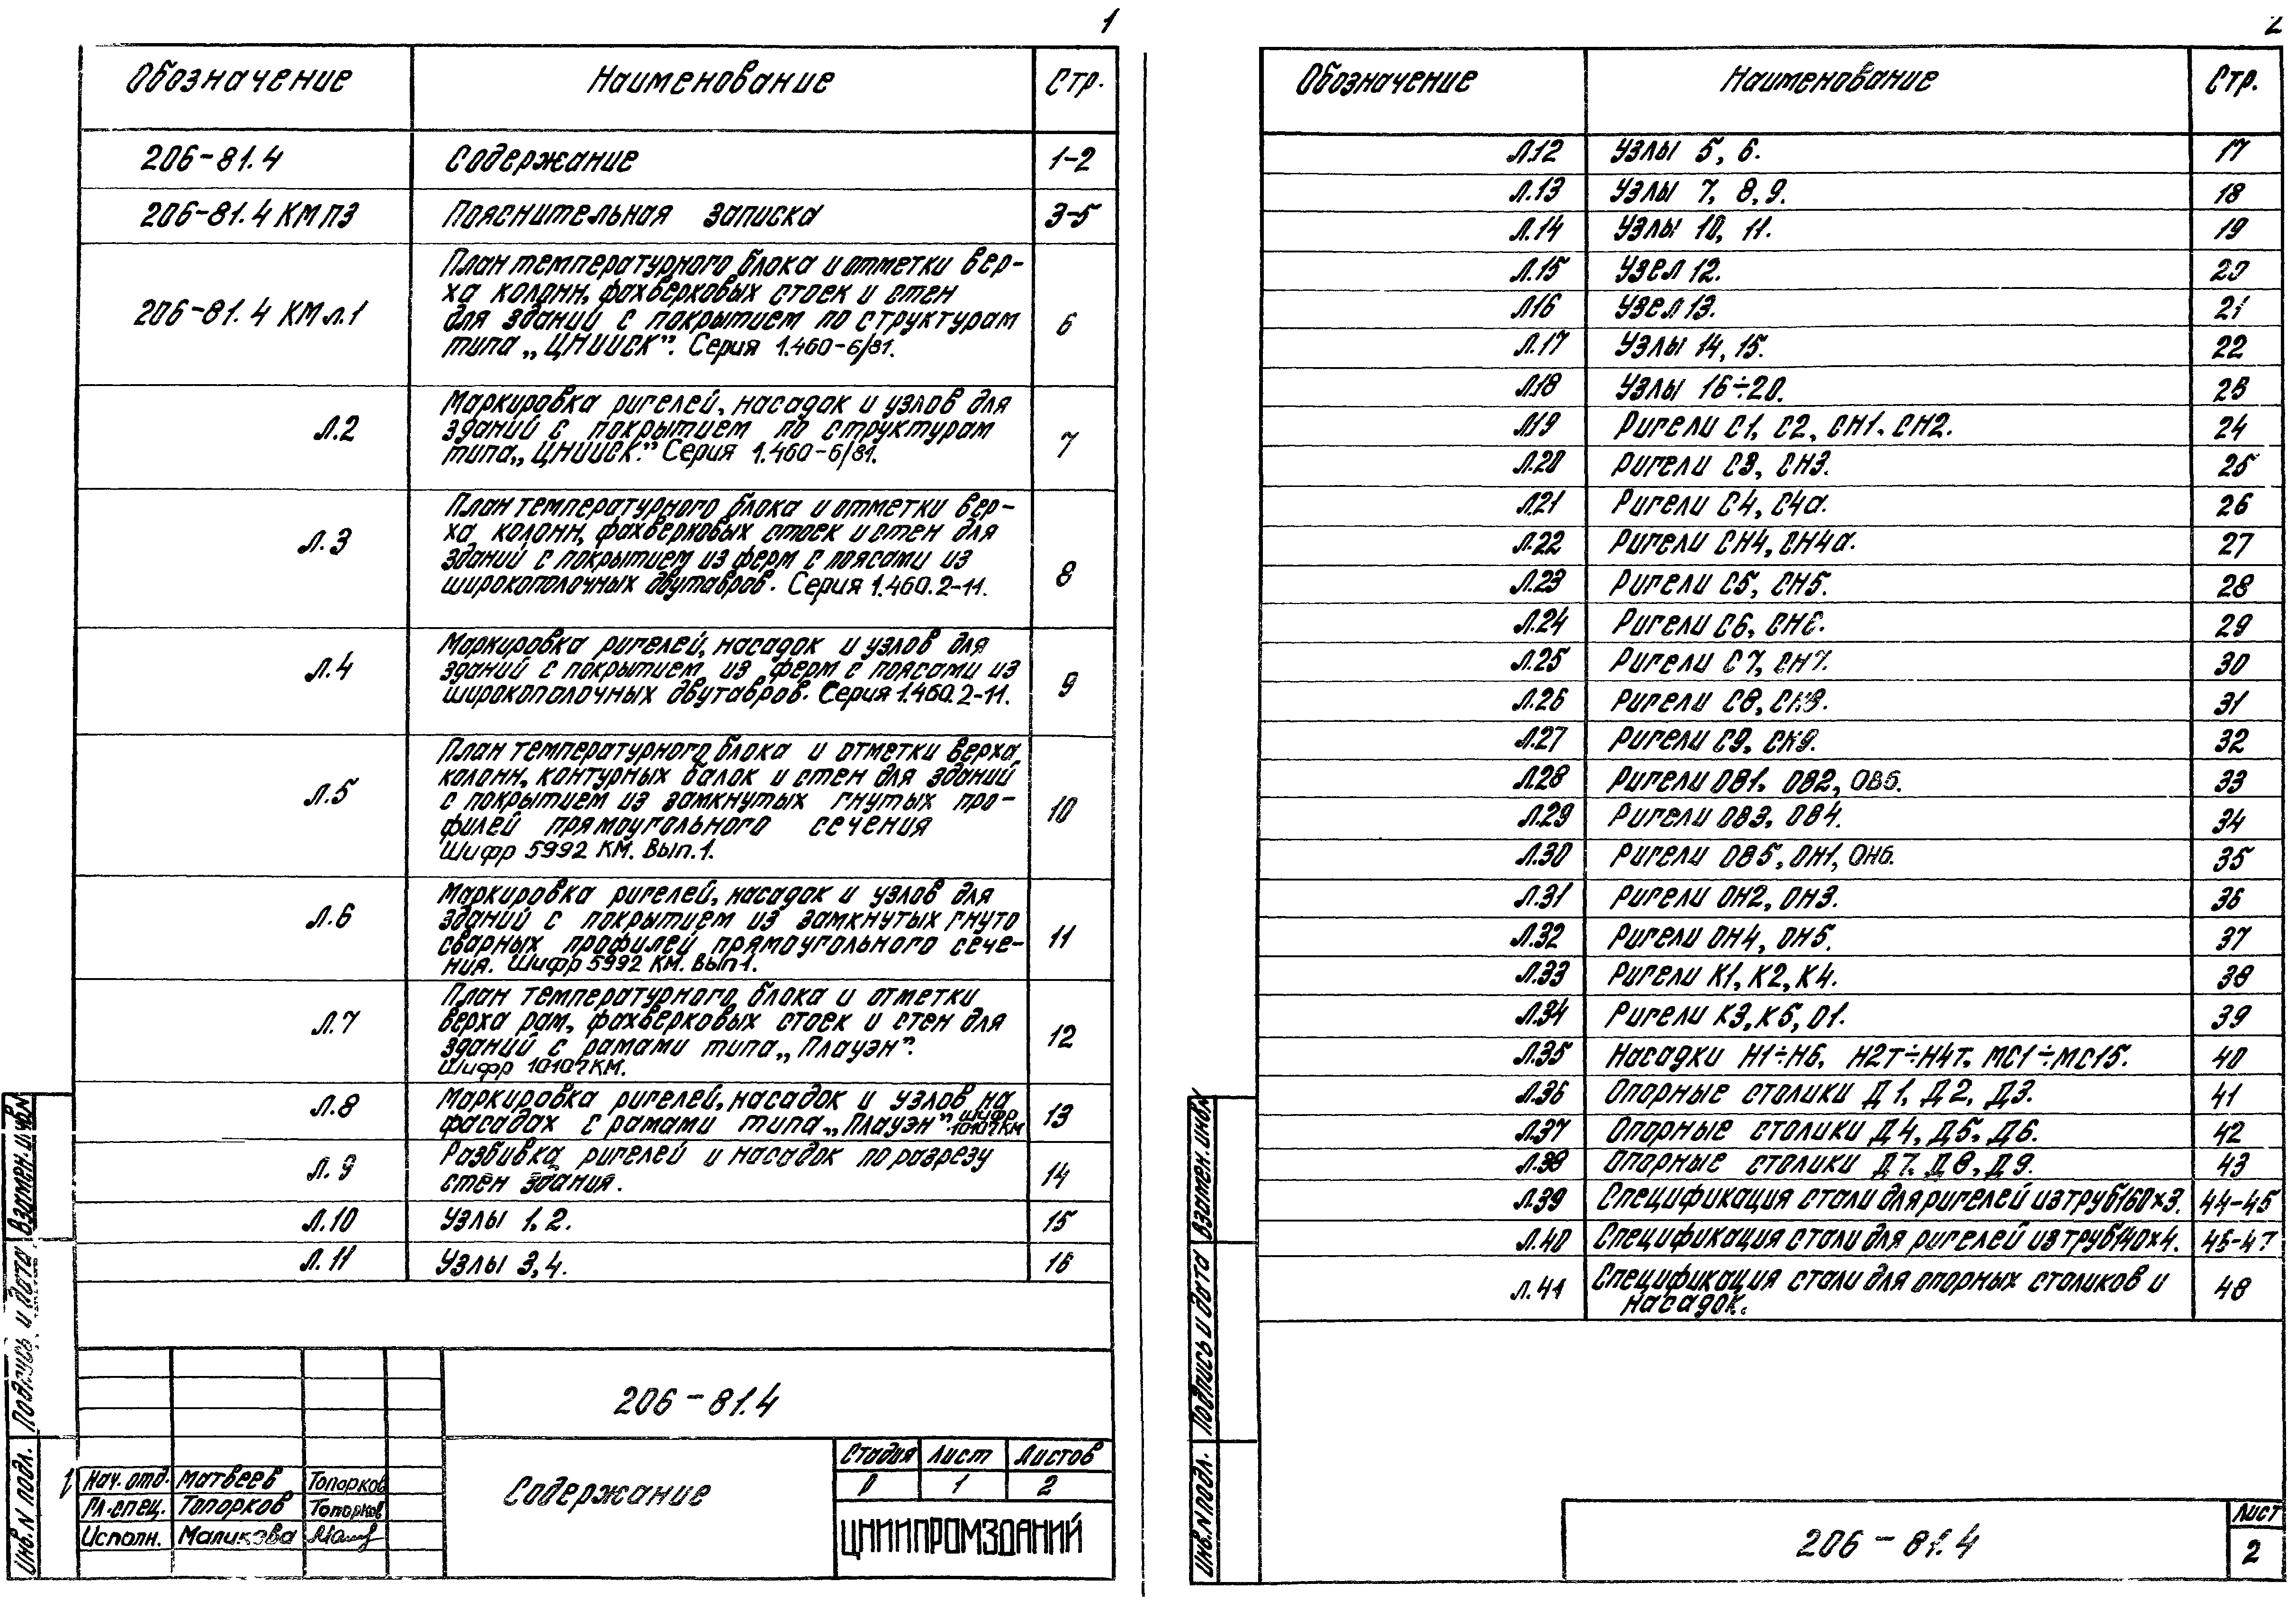 1
Обозначение Наименование Стр.
206-81.4 Содержание 1-2
206-81.4 КМ ПЗ Пояснительная записка 3-5
План температурного блока и отметки вер-
ха колонн, фахверковых стоек и стен
206-81.4 КМ л.1 для зданий с покрытием по структурам 6
типа „ЦНИИСК". Серия 1.460-6/81.
Маркировка ригелей, насадок и узлов для
л.2 зданий с покрытием по структурам 7
типа „ЦНИИСК." Серия 1.460-6/81.
План температурного блока и отметки вер-
ха колонн, фахверковых стоек и стен для
л.3 зданий с покрытием из ферм с поясами из 8
широкополочных двутавров. Серия 1.460.2-11.
Маркировка ригелей, насадок и узлов для
л.4 зданий с покрытием из ферм с поясами из 9
широкополочных двутавров. Серия 1.460.2-11.
План температурного блока и отметки верха
колонн, контурных балок и стен для зданий
л.5 с покрытием из замкнутых гнутых про- 10
филей прямоугольного сечения
Шифр 5992 КМ. Вып.1.
Маркировка ригелей, насадок и узлов для
л.6 зданий с покрытием из замкнутых гнуто
сварных профилей прямоугольного сече- 11
ния. Шифр 5992 КМ. Вып1.
План температурного блока и отметки
л.7 верха рам, фахверковых стоек и стен для 12
зданий с рамами типа „Плауэн".
Шифр 10107КМ.
л.8 Маркировка ригелей, насадок и узлов на 13
фасадах с рамами типа „Плауэн". шифр 10107КМ
л.9 Разбивка ригелей и насадок по разрезу 14
стен здания.
л.10 Узлы 1, 2. 15
л.11 Узлы 3, 4. 16
206-81.4
Содержание
Стадия Лист Листов
Р 1 2
ЦНИИПРОМЗДАНИЙ
Нач. отд. Матвеев Топорков
Гл. спец. Топорков Топорков
Исполн. Маликова
Взамен. инв.N
Подпись и дата
Инв. N подл.
2
Обозначение Наименование Стр.
л.12 Узлы 5, 6. 17
л.13 Узлы 7, 8, 9. 18
л.14 Узлы 10, 11. 19
л.15 Узел 12. 20
л16 Узел 13. 21
л.17 Узлы 14, 15. 22
л18 Узлы 16÷20. 23
л19 Ригели С1, С2, СН1, СН2. 24
л.20 Ригели С3, СН3. 25
л.21 Ригели С4, С4а. 26
л.22 Ригели СН4, СН4а. 27
л.23 Ригели С5, СН5. 28
л.24 Ригели С6, СН6. 29
л.25 Ригели С7, СН7. 30
л.26 Ригели С8, СН8. 31
л.27 Ригели С9, СН9. 32
л.28 Ригели ОВ1, ОВ2, ОВ6. 33
л.29 Ригели ОВ3, ОВ4. 34
л.30 Ригели ОВ5, ОН1, ОН6. 35
л.31 Ригели ОН2, ОН3. 36
л.32 Ригели ОН4, ОН5. 37
л.33 Ригели К1, К2, К4. 38
л.34 Ригели К3, К5, О1. 39
л.35 Насадки Н1÷Н6, Н2т÷Н4т, МС1÷МС15. 40
л.36 Опорные столики Д1, Д2, Д3. 41
л.37 Опорные столики Д4, Д5, Д6. 42
л.38 Опорные столики Д7, Д8, Д9. 43
л.39 Спецификация стали для ригелей из труб160×3. 44-45
л.40 Спецификация стали для ригелей из труб140×4. 45-47
л.41 Спецификация стали для опорных столиков и 48
насадок.
206-81.4
Лист
2
Взамен. инв.N
Подпись и дата
Инв. N подл.